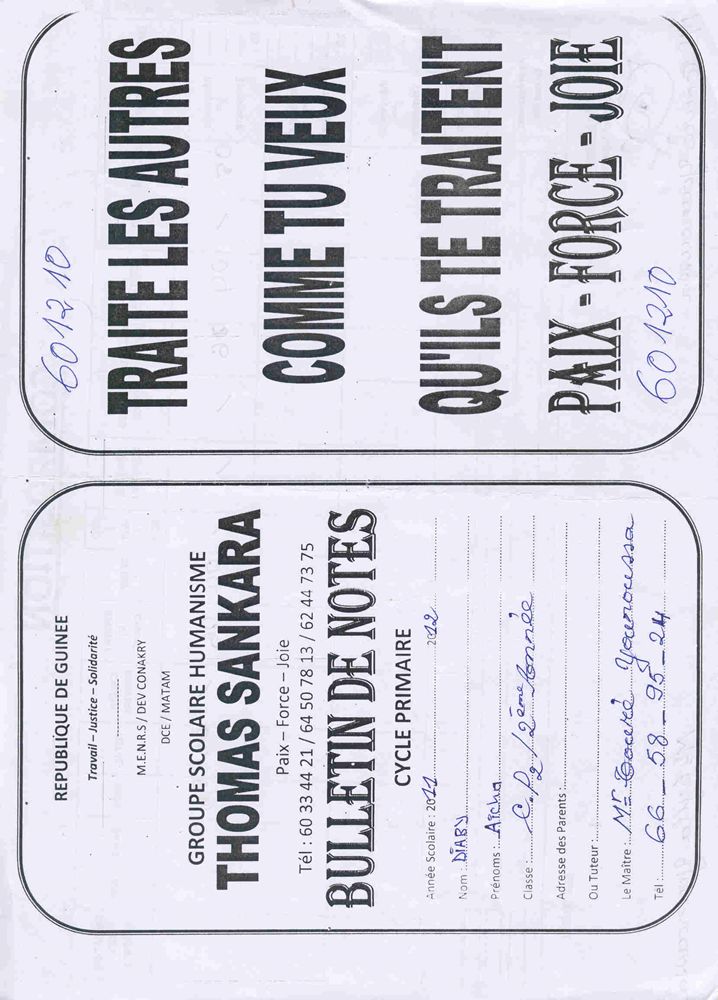 REPUBLIQUE DE GUINEE
Travail – Justice – Solidarité
M.E.N.R.S / DEV CONAKRY
DCE / MATAM
GROUPE SCOLAIRE HUMANISME
THOMAS SANKARA
Paix – Force – Joie
Tél : 60 33 44 21 / 64 50 78 13 / 62 44 73 75
BULLETIN DE NOTES
CYCLE PRIMAIRE
Année Scolaire : 2011 2012
Nom : DIABY
Prénoms : Aïcha
Classe : C.P2 / 2ème Année
Adresse des Parents :
Ou Tuteur :
Le Maître : Mr Touré Younoussa
Tél : 66 _ 58 _ 95 _ 24
601210
TRAITE LES AUTRES
COMME TU VEUX
QU'ILS TE TRAITENT
PAIX - FORCE - JOIE
601210